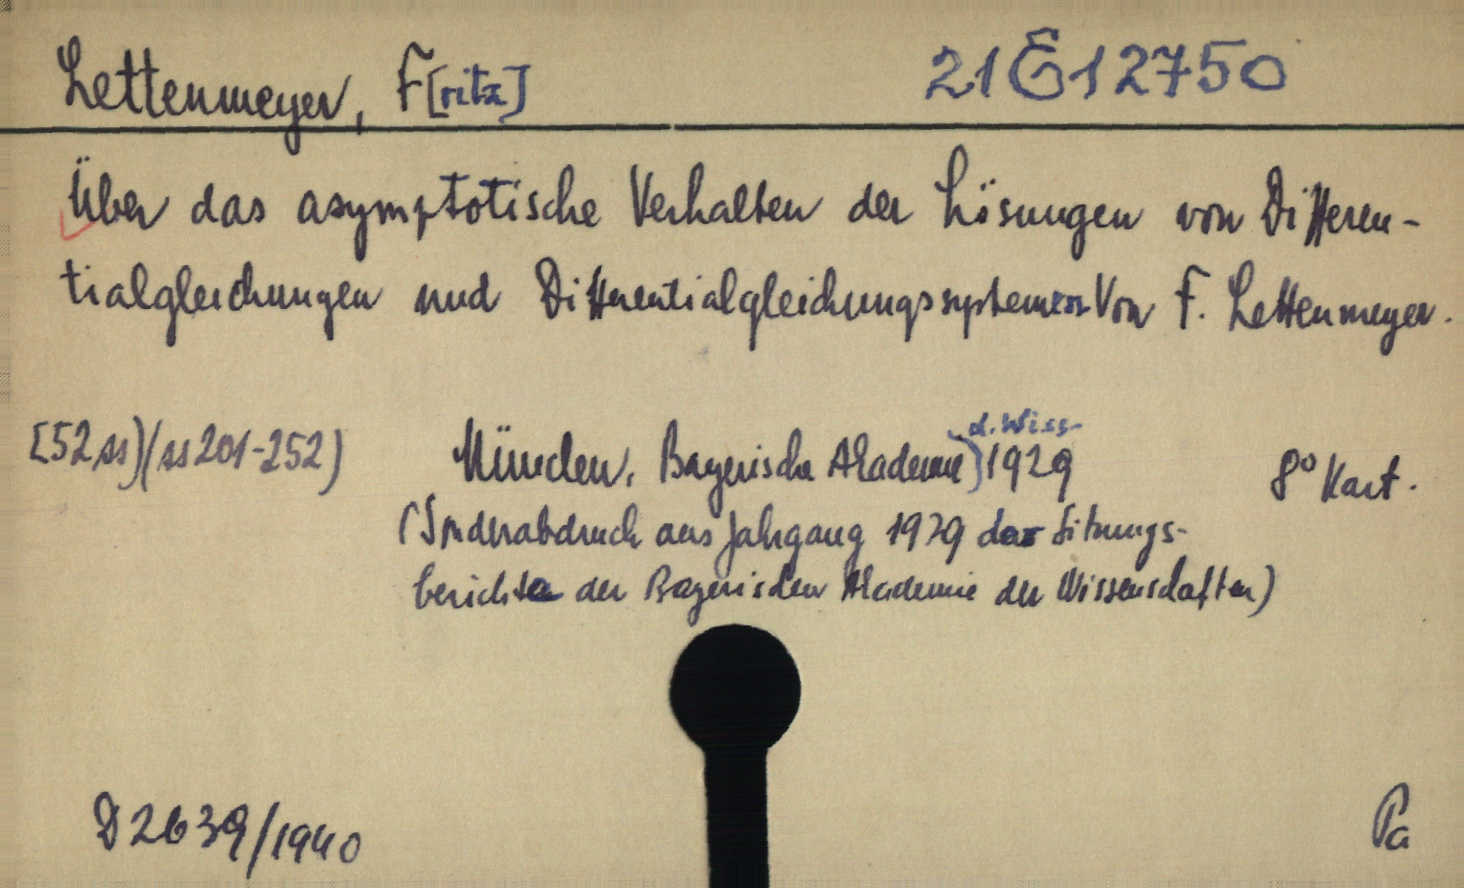 Lettenmeyer, F[ritz] 21 E 12750
Über das asymptotische Verhalten der Lösungen von Differen-
tialgleichungen und Differentialgleichungssystemen Von F. Lettenmeyer.
[52 ss) (ss 201-252) München, Bayerische Akademie d. Wiss. 1929 8° Kart.
(Sonderabdruck aus Jahrgang 1929 der Sitzungs-
berichte der Bayerischen Akademie der Wissenschaften)
D 2639/1940 Pa